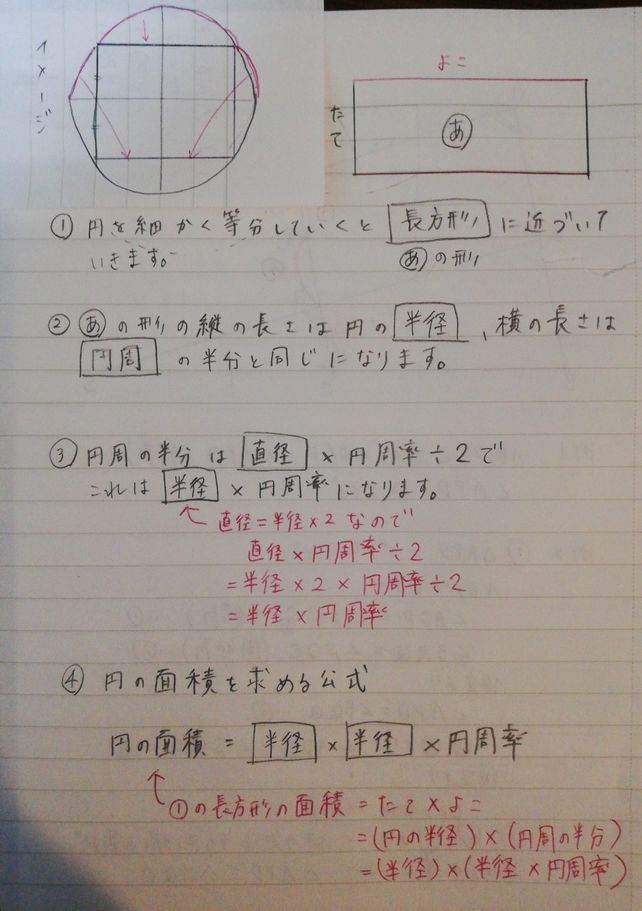 イメージ
よこ
たて
あ
① 円を細かく等分していくと 長方形 に近づいて
いきます。
あの形
② あの形の縦の長さは円の 半径 、横の長さは
円周 の半分と同じになります。
③ 円周の半分は 直径 × 円周率÷2で
これは 半径 × 円周率になります。
直径=半径×2なので
直径×円周率÷2
=半径×2×円周率÷2
=半径×円周率
④ 円の面積を求める公式
円の面積 = 半径 × 半径 × 円周率
①の長方形の面積 = たて×よこ
=(円の半径)×(円周の半分)
=(半径)×(半径×円周率)